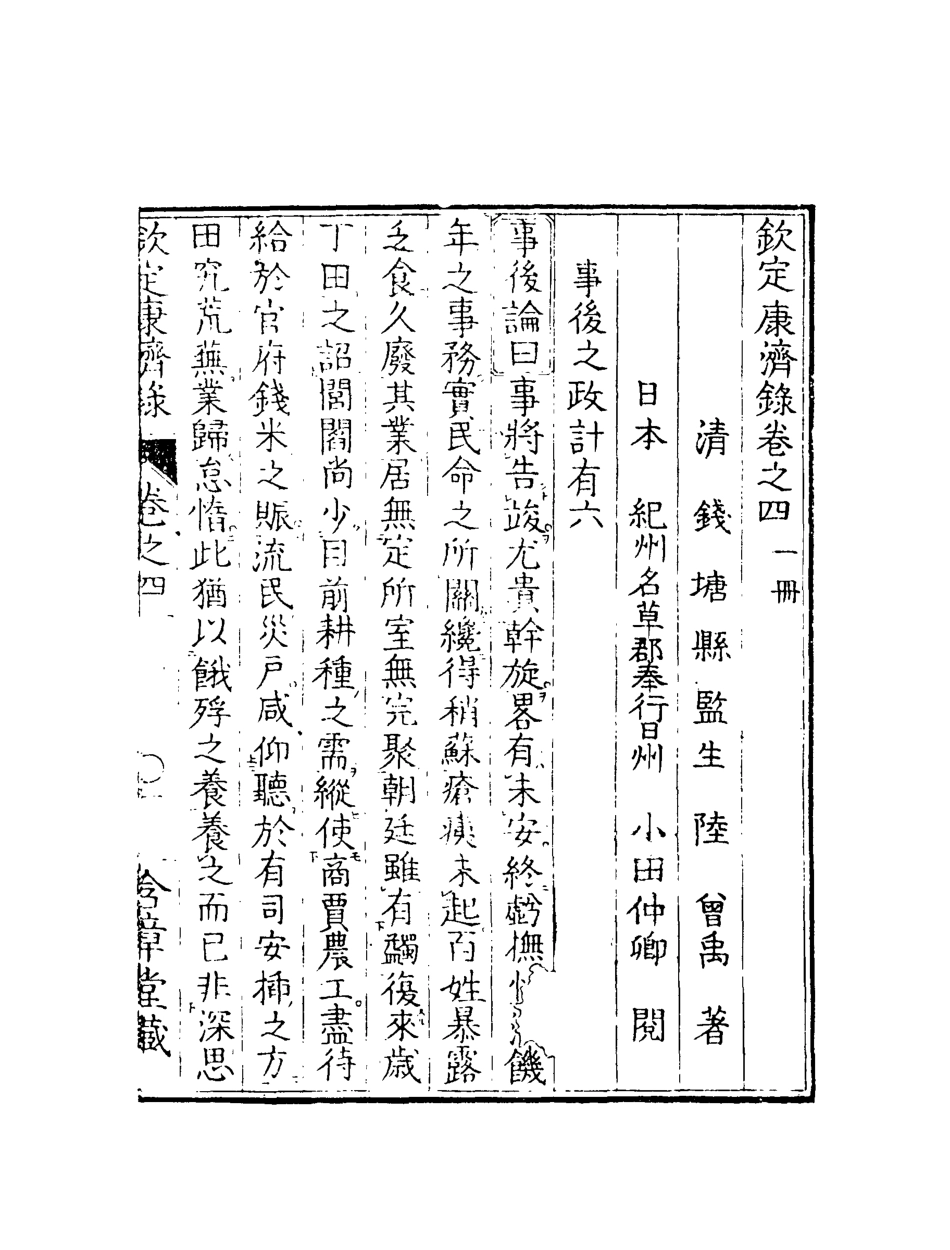 欽定康濟錄卷之四 一冊
清 錢塘縣監生 陸 曾禹 著
日本 紀州名草郡奉行日州 小田仲卿 閱
事後之政計有六
事後論曰事將告竣尤貴幹旋畧有未安終虧撫 饑
年之事務實民命之所關纔得稍蘇瘡痍未起百姓暴露
乏食久廢其業居無定所室無完聚朝廷雖有蠲復來歲
丁田之詔閭閻尚少目前耕種之需縱使商賈農工盡待
給於官府錢米之賑流民災戶咸仰聽於有司安揷之方
田究荒蕪業歸怠惰此猶以餓殍之養養之而已非深思
欽定康濟錄 卷之四 含章堂藏